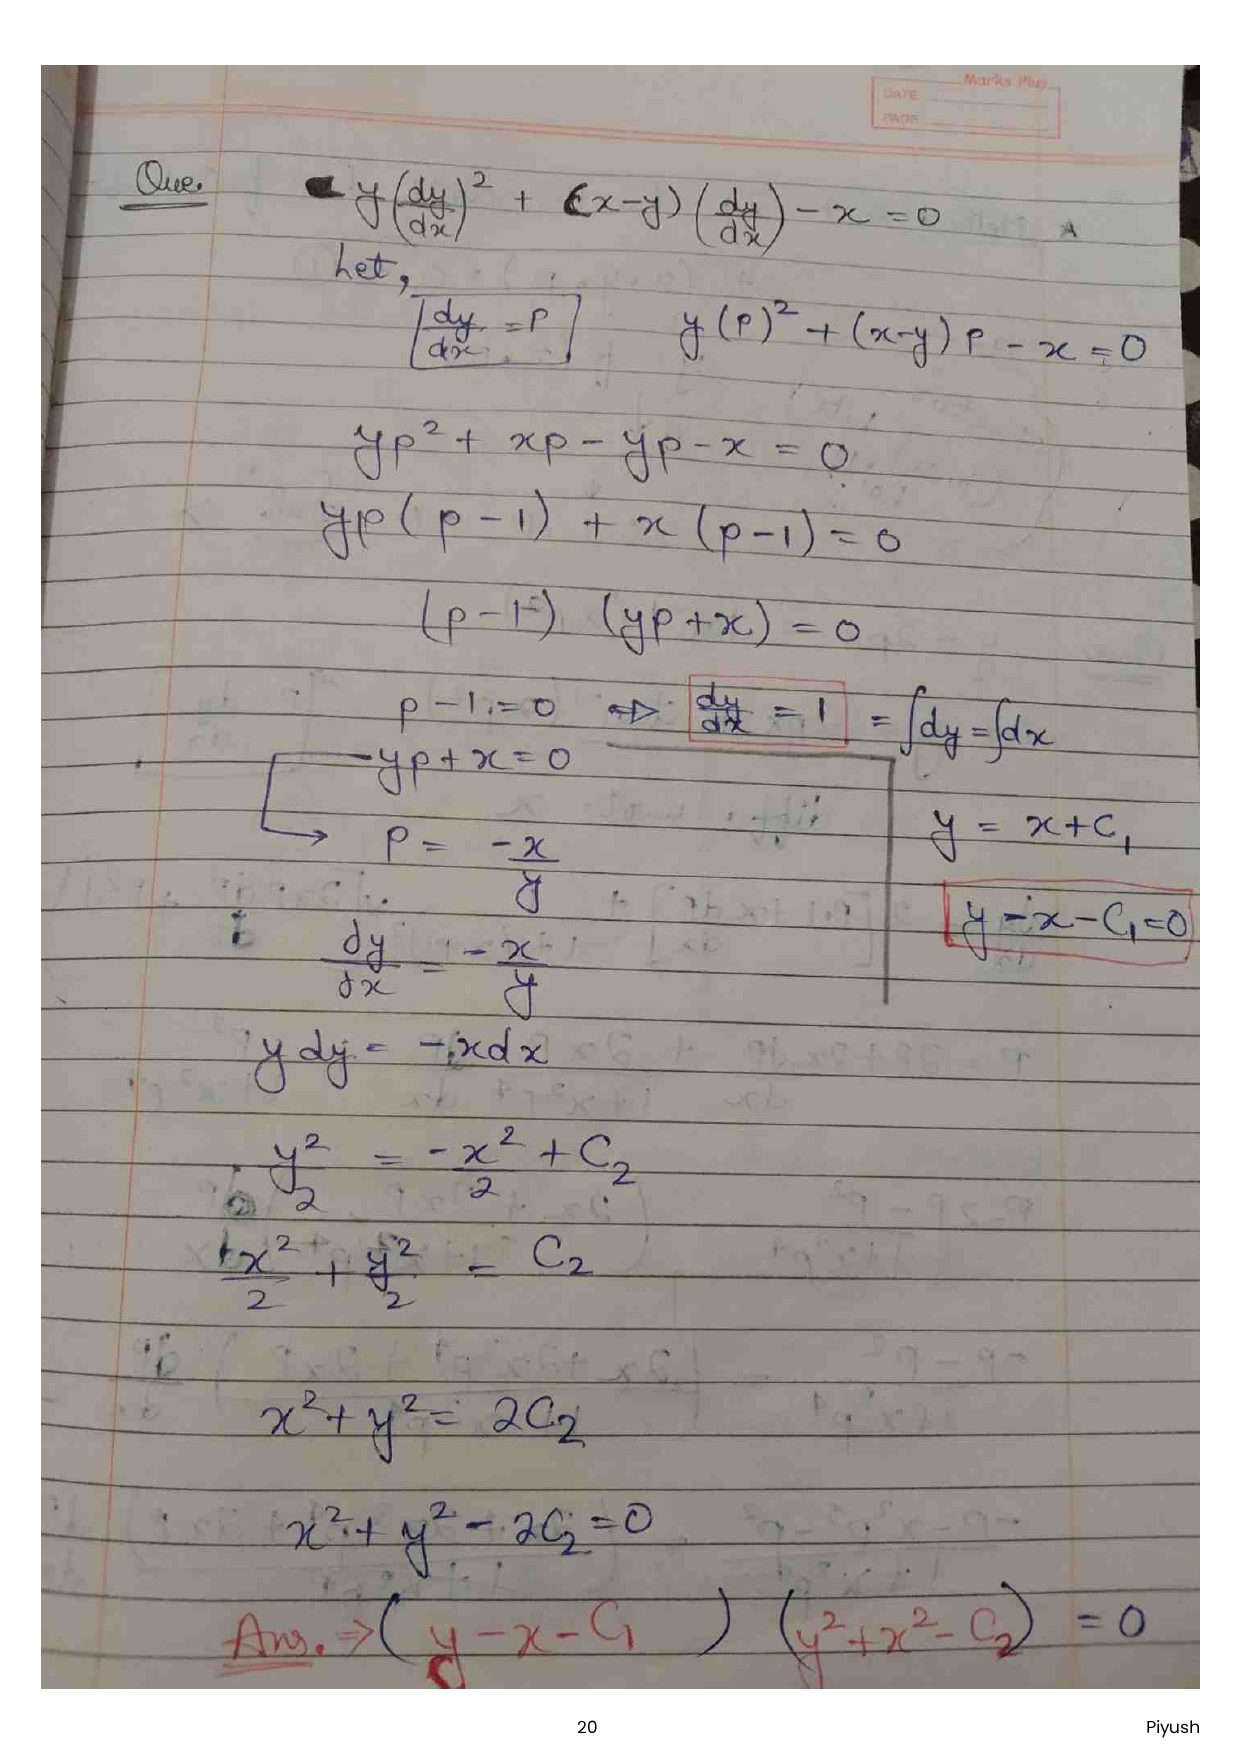 Marks Plus
DATE
PAGE
Que. y(dy/dx)² + (x-y)(dy/dx) - x = 0
Let,
dy/dx = P    y(P)² + (x-y)P - x = 0
yp² + xp - yp - x = 0
yp(p-1) + x(p-1) = 0
(p-1) (yp+x) = 0
p-1 = 0 ⇒ dy/dx = 1 = ∫dy = ∫dx
yp+x = 0
y = x+C₁
P = -x/y
y-x-C₁=0
dy/dx = -x/y
y dy = -xdx
y²/2 = -x²/2 + C₂
x²/2 + y²/2 = C₂
x²+y² = 2C₂
x²+y²-2C₂=0
Ans. ⇒ (y-x-C₁) (y²+x²-C₂) = 0
20
Piyush